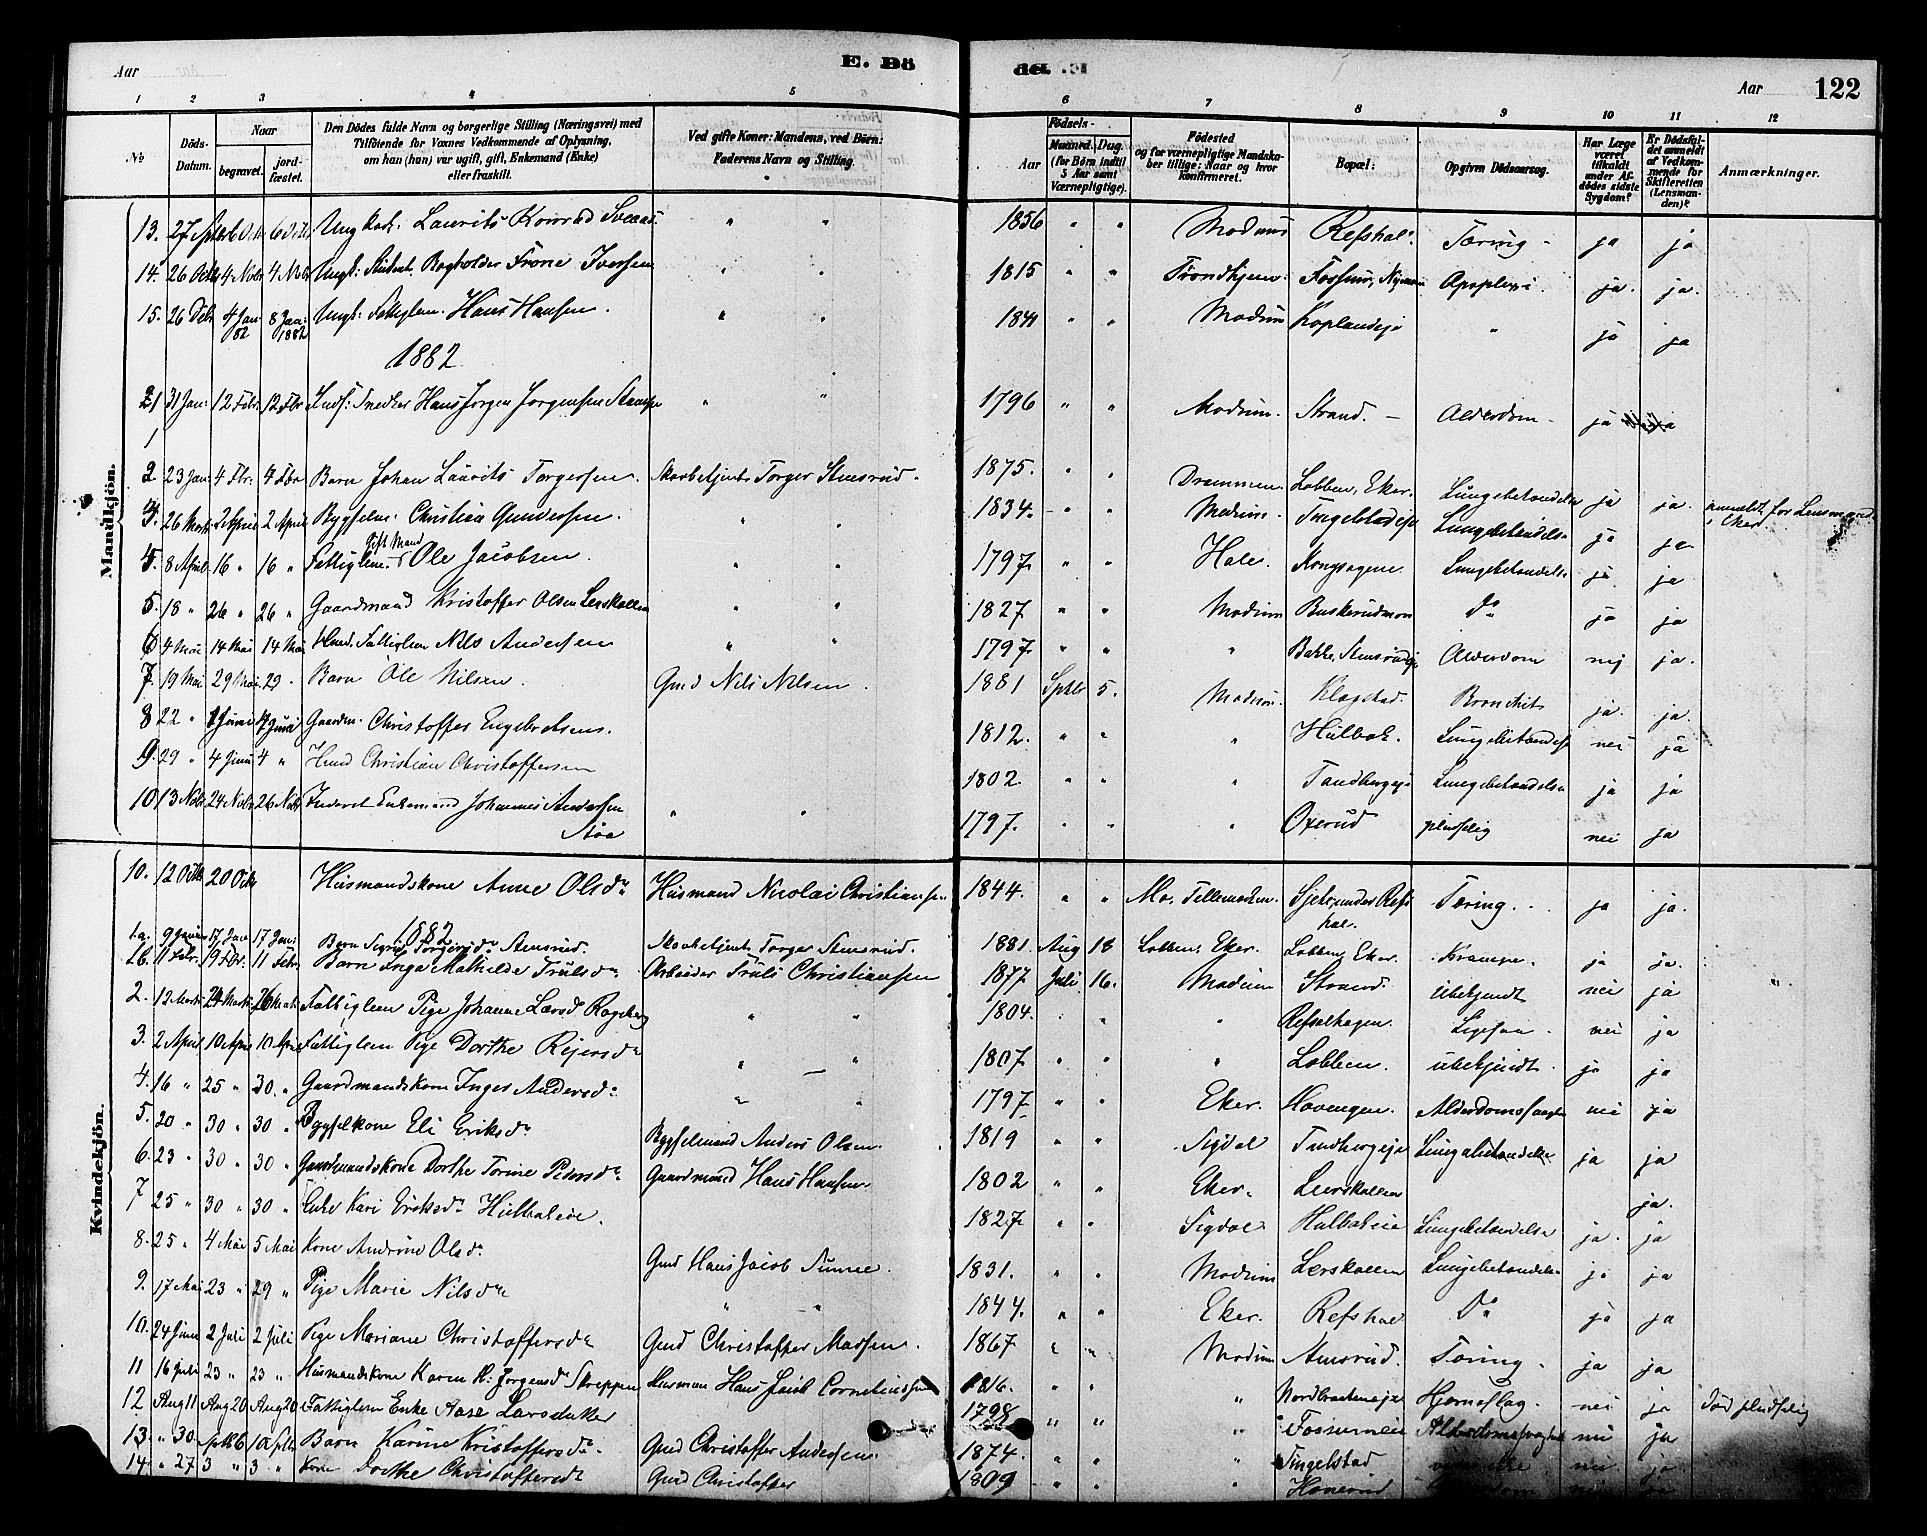 Aar E. Dö de. Aar 122
1 2 3 4 5 6 7 8 9 10 11 12
No Döds-Datum. Naar begravet. jordfæstet. Den Dödes fulde Navn og borgerlige Stilling (Næringsvei) med Tilföiende for Voxnes Vedkommende af Oplysning, om han (hun) var ugift, gift, Enkemand (Enke) eller fraskilt. Ved gifte Koner: Mandens, ved Börn: Faderens Navn og Stilling. Födsels- Aar Maaned. Dag. (for Börn indtil 5 Aar samt Værnepligtige). Födested og for værnepligtige Mandskaber tillige: Naar og hvor konfirmeret. Bopæl: Opgiven Dödsaarsag. Har Læge været tilkaldt under Afdödes sidste Sygdom? Er Dödsfaldet anmeldt af Vedkommende for Skifteretten (Lensmanden)? Anmærkninger.
Mandkjön.
13. 27 Septbr 6 Octr 6 Octr Ungkarl. Laurits Konrad Sveaas " " 1856 " " Modum Refshal. Tæring - ja ja
14. 26 Octbr 4 Novbr 4 Nvbr Ungk: Student. Bogholder Frone Iversen " " 1815 " " Trondhjem. Fossum, Apoplexi. ja. ja.
15. 26 Debr 4 Jan 82 8 Jan: 1882 Ungk: Fattiglem. Hans Hansen. " " 1841 " " Modum Koplandeje " ja ja
1882
1 31 Jan: 12 Febr. 12 Febr Inds: Snedker Hans Jørgen Jørgensen " " 1796 " " Modum. Strand. - Alderdom - ja ja
2. 23 Jan: 4 Fbr: 4 Fbr Barn Johan Laurits Torgersen. Skovbetjent Torger Stensrud. 1875. " " Drammen. Lobben, Eker. Lungebetændelse ja ja. anmeldt for Lensmand i Eker.
3. 26 Marts 2 April 2 April Bygselm. Christian Gundersen. " " 1834. - " Modum. Lungebetændelse ja ja
4. 8 April 16 " 16 " Fattiglem. Gift Mand Ole Jacobsen " " 1797. " " Hole. Kongsagene. Lungebetændelse ja ja
5. 18 " 26 " 26 " Gaardmand Kristoffer Olsen Lerskallen " " 1827 " " Modum Buskerudmoen Do ja ja
6 4 Mai 14 Mai 14 Mai Fattiglem Nils Andersen " " 1797. " " " Bakke, Alderdom nej ja.
7. 19 Mai 29 Mai 29. Barn Ole Nilsen. Gmd Nils Nilsen. 1881 Sptbr 5. Modum. Klogstad. Bronchit ja. ja.
8 22 " 4 Juni 4 Juni Gaardm. Christoffer Engebretsen. 1812. " " " Hulbak. Lungebetændelse nei ja
9. 29 " 4 Juni 4 " Husmd Christian Christoffersen 1802. " " " Tandbergeje Lungebetændelse ja ja
10 13 Nvbr 24 Nvbr 26 Nvbr Inderst Enkemand Johannes Andersen Støa " " 1797. " " " Oxerud pludselig nei ja
Kvindekjön.
10. 12 Octbr 20 Octbr Husmandskone Anne Olsdr Husmand Nicolai Christiansen 1844. " " Mo, Tellemarken. under Refshal. Tæring. . ja ja.
1882
1a. 9 Januar 17 Jan 17 Jan. Barn Sigrid Torgersdr Stensrud. Skovbetjent Torger Stensrud. 1881. Aug 18 Lobben, Eker. Lobben, Eker. Krampe. ja ja.
1b. 11 Febr. 19 Fbr. 11 Febr. Barn Inga Mathilde Trulsdr Arbeider Truls Christiansen 1877 Juli 16. Modum Strand. Ubekjendt nei ja "
2. 12 Marts 24 Marts 26 Mart Fattiglem Pige Johanne Larsd " " 1804. . " " Refsalhagen. nei ja
3. 2 April 10 April 10 April Fattiglem Pige Dorthe Reiersdr " " 1807. " " " Lobben. ubekjendt. ja ja
4. 16 " 25 " 30. " Gaardmandskone Inger Andersdr " " 1797. " " Eker. Hovengen. Alderdomssvaghed nei ja
5. 20 " 30 " 30 " Bygselkone Eli Eriksdr Bygselmand Anders Olsen. 1819 " " Sigdal Tandbergeje Lungebetændelse ja ja
6. 23 " 30 " 30 " Gaardmandskone Dorthe Torine Pedersdr Gaardmand Hans Hansen. 1802 " " Eker. Lerskallen ja.
7 25 " 30 " 30 " Enke Kari Eriksdr Hulbakeie. 1827. " " Sigdal Hulbakeie Lungebetændelse ja. ja
8. 25 " 4 Mai 5 Mai Kone Andrine Olsdr Gmd Hans Jacob Sunne. 1831. " " Modum Lerskallen Lungebetændelse ja ja
9. 17 Mai 23 " 29 " Pige Marie Nilsdr " " 1844. " " Eker. Refshal Do ja ja
10. 24 Juni 2 Juli 2 Juli Pige Mariane Christoffersdr Gmd Christoffer Madsen. 1867 " " Modum Tæring. ja ja
11 16 Juli 23 " 23 " Husmandskone Karen K. Jørgensdr Skreppen Husman Hans Jacob Corneliussen 1816. " " " Hjerneslag. nei ja Død pludselig
12 Aug 11 Aug 20 Aug 20 Fattiglem Enke Aase Larsdatter 1798 " " " Fossumeie Alderdomssvaghed nei ja
13. " 30 Sptb 6 10 Sptb Barn Karine Kristoffersdr. Gmd Christoffer Andersen. 1874. " " " Tingelstad nei ja
14. " 27 3 " 3 " Kone Dorthe Christoffersdr Gmd Christoffer 1809 " " " Honerud ja